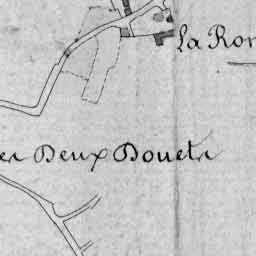 La Ron
es Deux Douets